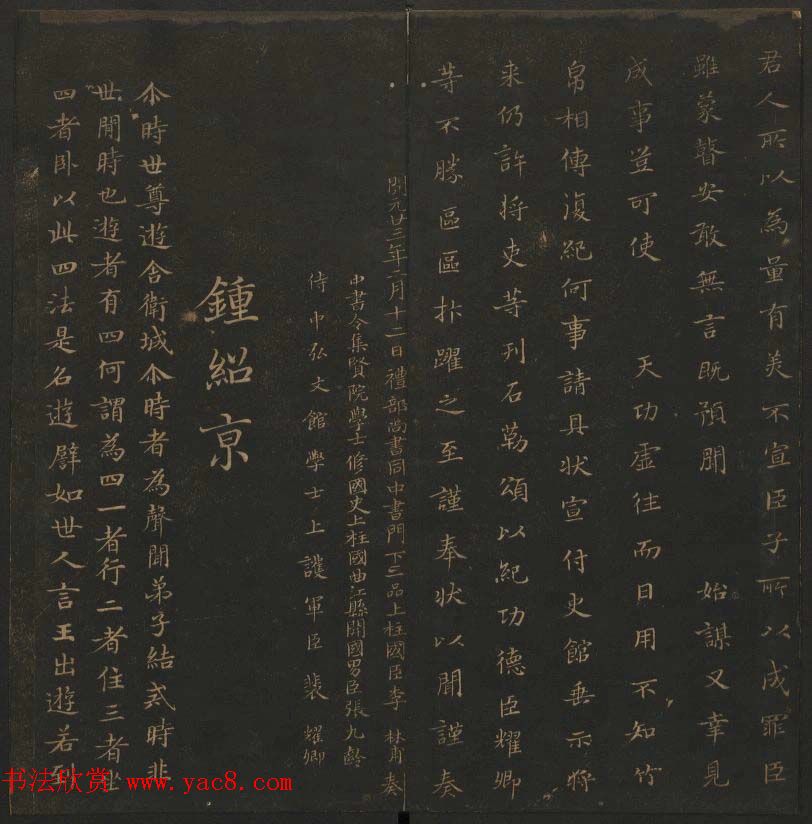 君人所以為量有美不宣臣子所以成罪臣
雖蒙瞽安敢無言既預聞　始謀又幸見
成事豈可使　天功虛往而日用不知竹
帛相傳復紀何事請具狀宣付史館垂示將
来仍許將吏等刊石勒頌以紀功德臣耀卿
等不勝區區抃躍之至謹奉狀以聞謹奏
開元廿三年二月十二日禮部尚書同中書門下三品上柱國臣李林甫奏
中書令集賢院學士修國史上柱國曲江縣開國男臣張九齡
侍中弘文館學士上護軍臣裴耀卿
鍾紹京
尒時世尊遊舍衛城尒時者為聲聞弟子結戒時非
世間時也遊者有四何謂為四一者行二者住三者坐
四者卧以此四法是名遊譬如世人言王出遊若到
书法欣赏 www.yac8.com